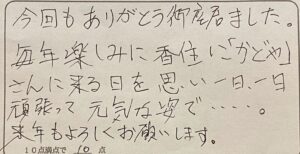 今回もありがとう御座居ました。
毎年楽しみに香住い「かどや」
さんに来る日を思い一日、一日
頑張って元気な姿で・・・・。
来年もよろしくお願いします。
10点満点で 10 点